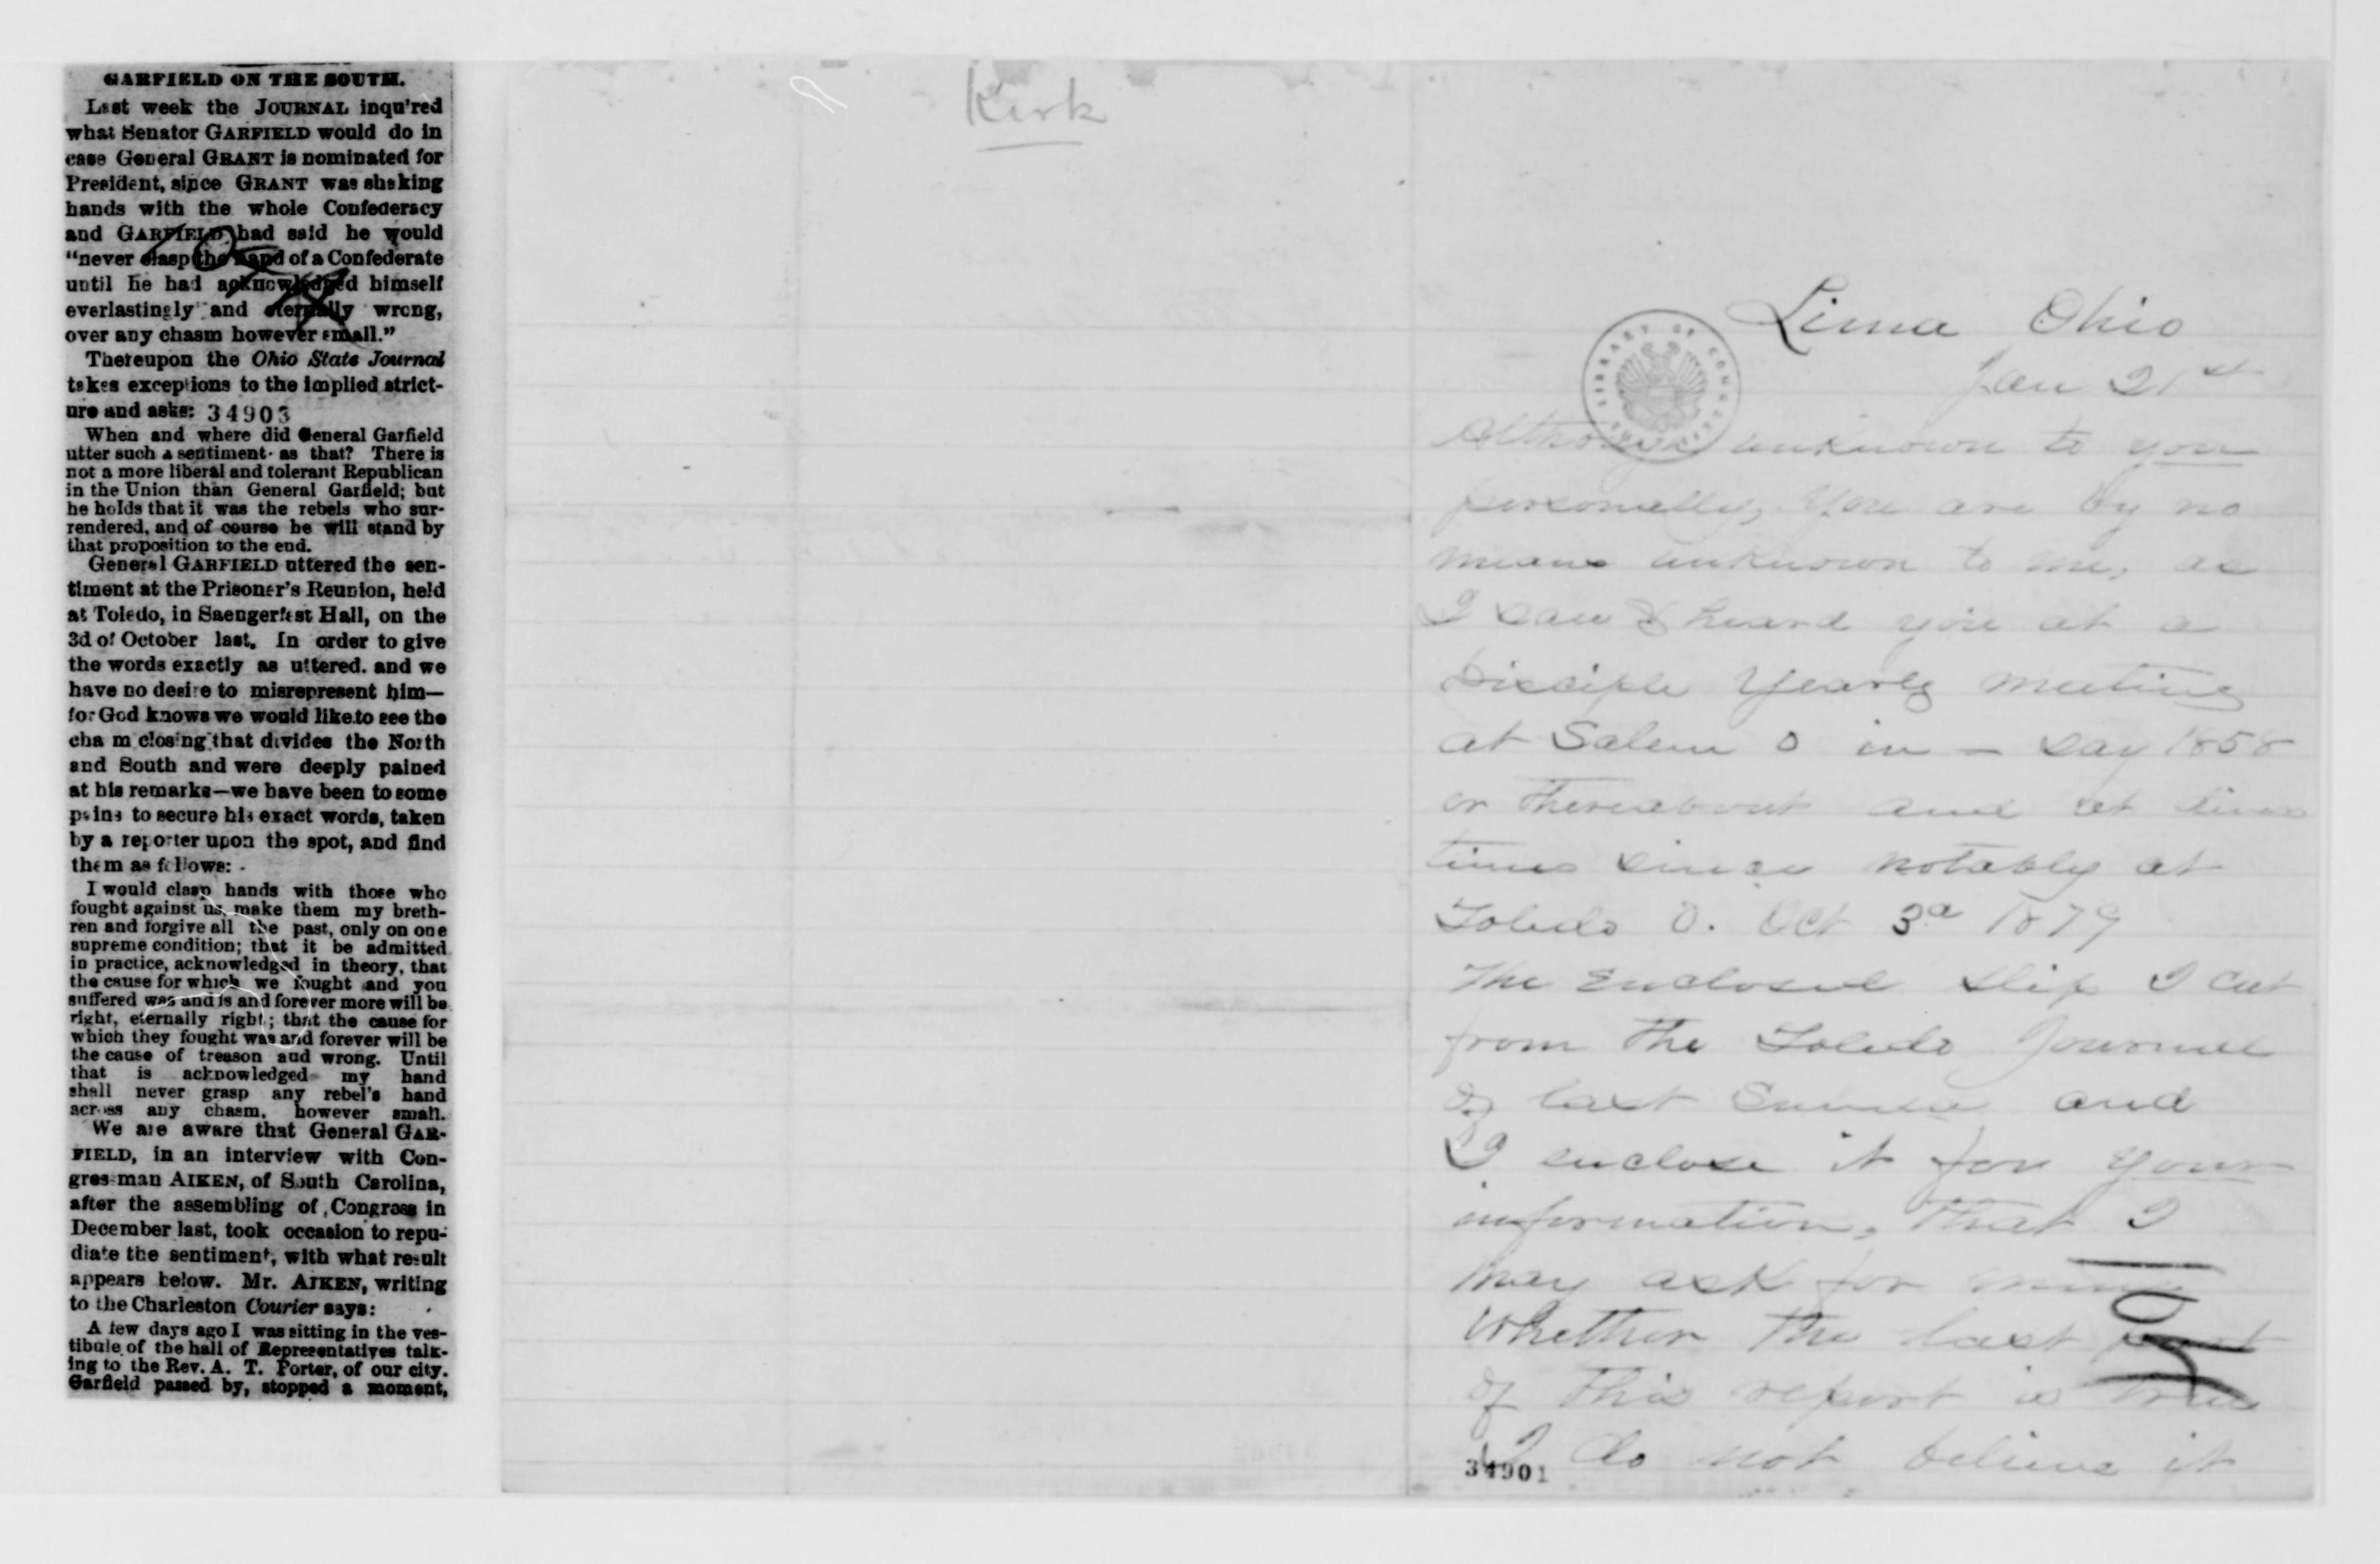 GARFIELD ON THE SOUTH.
Last week the JOURNAL inqu'red
what Senator GARFIELD would do in
case General GRANT is nominated for
President, since GRANT was shaking
hands with the whole Confederacy
and GARFIELD had said he would
"never clasp the hand of a Confederate
until he had acknowledged himself
everlastingly and eternally wrong,
over any chasm however small."
Thereupon the Ohio State Journal
takes exceptions to the implied strict-
ure and asks: 34903
When and where did General Garfield
utter such a sentiment as that? There is
not a more liberal and tolerant Republican
in the Union than General Garfield; but
he holds that it was the rebels who sur-
rendered, and of course he will stand by
that proposition to the end.
General GARFIELD uttered the sen-
timent at the Prisoner's Reunion, held
at Toledo, in Saengerfest Hall, on the
3d of October last. In order to give
the words exactly as uttered. and we
have no desire to misrepresent him—
for God knows we would like to see the
cha m closing that divides the North
and South and were deeply pained
at his remarks—we have been to some
pains to secure his exact words, taken
by a reporter upon the spot, and find
them as follows:
I would clasp hands with those who
fought against us, make them my breth-
ren and forgive all the past, only on one
supreme condition; that it be admitted
in practice, acknowledged in theory, that
the cause for which we fought and you
suffered was and is and forever more will be
right, eternally right; that the cause for
which they fought was and forever will be
the cause of treason and wrong. Until
that is acknowledged my hand
shall never grasp any rebel's hand
across any chasm, however small.
We are aware that General GAR-
FIELD, in an interview with Con-
gressman AIKEN, of South Carolina,
after the assembling of Congress in
December last, took occasion to repu-
diate the sentiment, with what result
appears below. Mr. AIKEN, writing
to the Charleston Courier says:
A few days ago I was sitting in the ves-
tibule of the hall of Representatives talk-
ing to the Rev. A. T. Porter, of our city.
Garfield passed by, stopped a moment,
Kirk
LIBRARY OF CONGRESS
Lima Ohio
Jan 21st
Although unknown to you
personally, you are by no
means unknown to me, as
I saw & heard you at a
Disciple Yearly meeting
at Salem O in – say 1858
or thereabout and at
times since notably at
Toledo O. Oct 3d 1879
The Enclosed slip I cut
from the Toledo Journal
of last and
I enclose it for your
information, that I
may ask for mine
Whether the last part
of this report is true
I do not believe it
34901